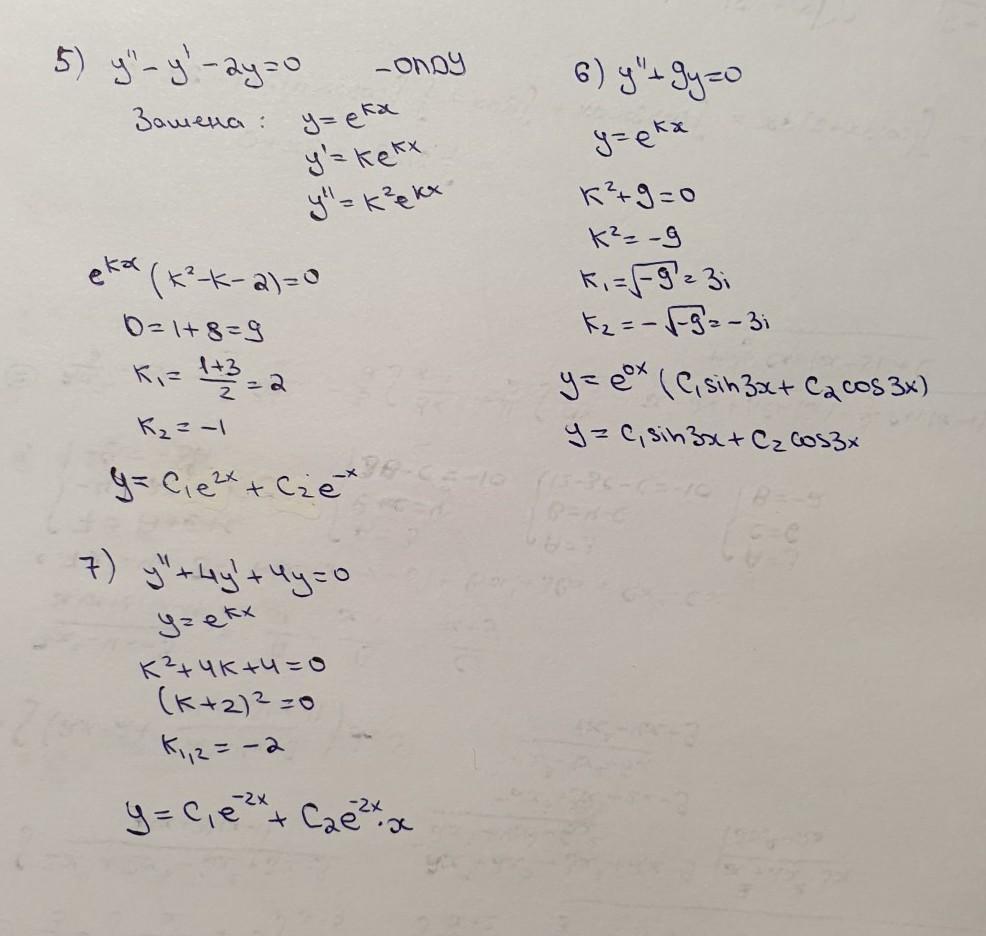 5) y'' - y' - 2y = 0 - ОЛДУ
Замена: y = e^{kx}
y' = ke^{kx}
y'' = k²e^{kx}
e^{kx} (k² - k - 2) = 0
D = 1 + 8 = 9
k₁ = \frac{1+3}{2} = 2
k₂ = -1
y = C₁e^{2x} + C₂e^{-x}
6) y'' + 9y = 0
y = e^{kx}
k² + 9 = 0
k² = -9
k₁ = √-9 = 3i
k₂ = -√-9 = -3i
y = e^{0x} (C₁ sin 3x + C₂ cos 3x)
y = C₁ sin 3x + C₂ cos 3x
7) y'' + 4y' + 4y = 0
y = e^{kx}
k² + 4k + 4 = 0
(k + 2)² = 0
k₁,₂ = -2
y = C₁e^{-2x} + C₂e^{-2x} · x